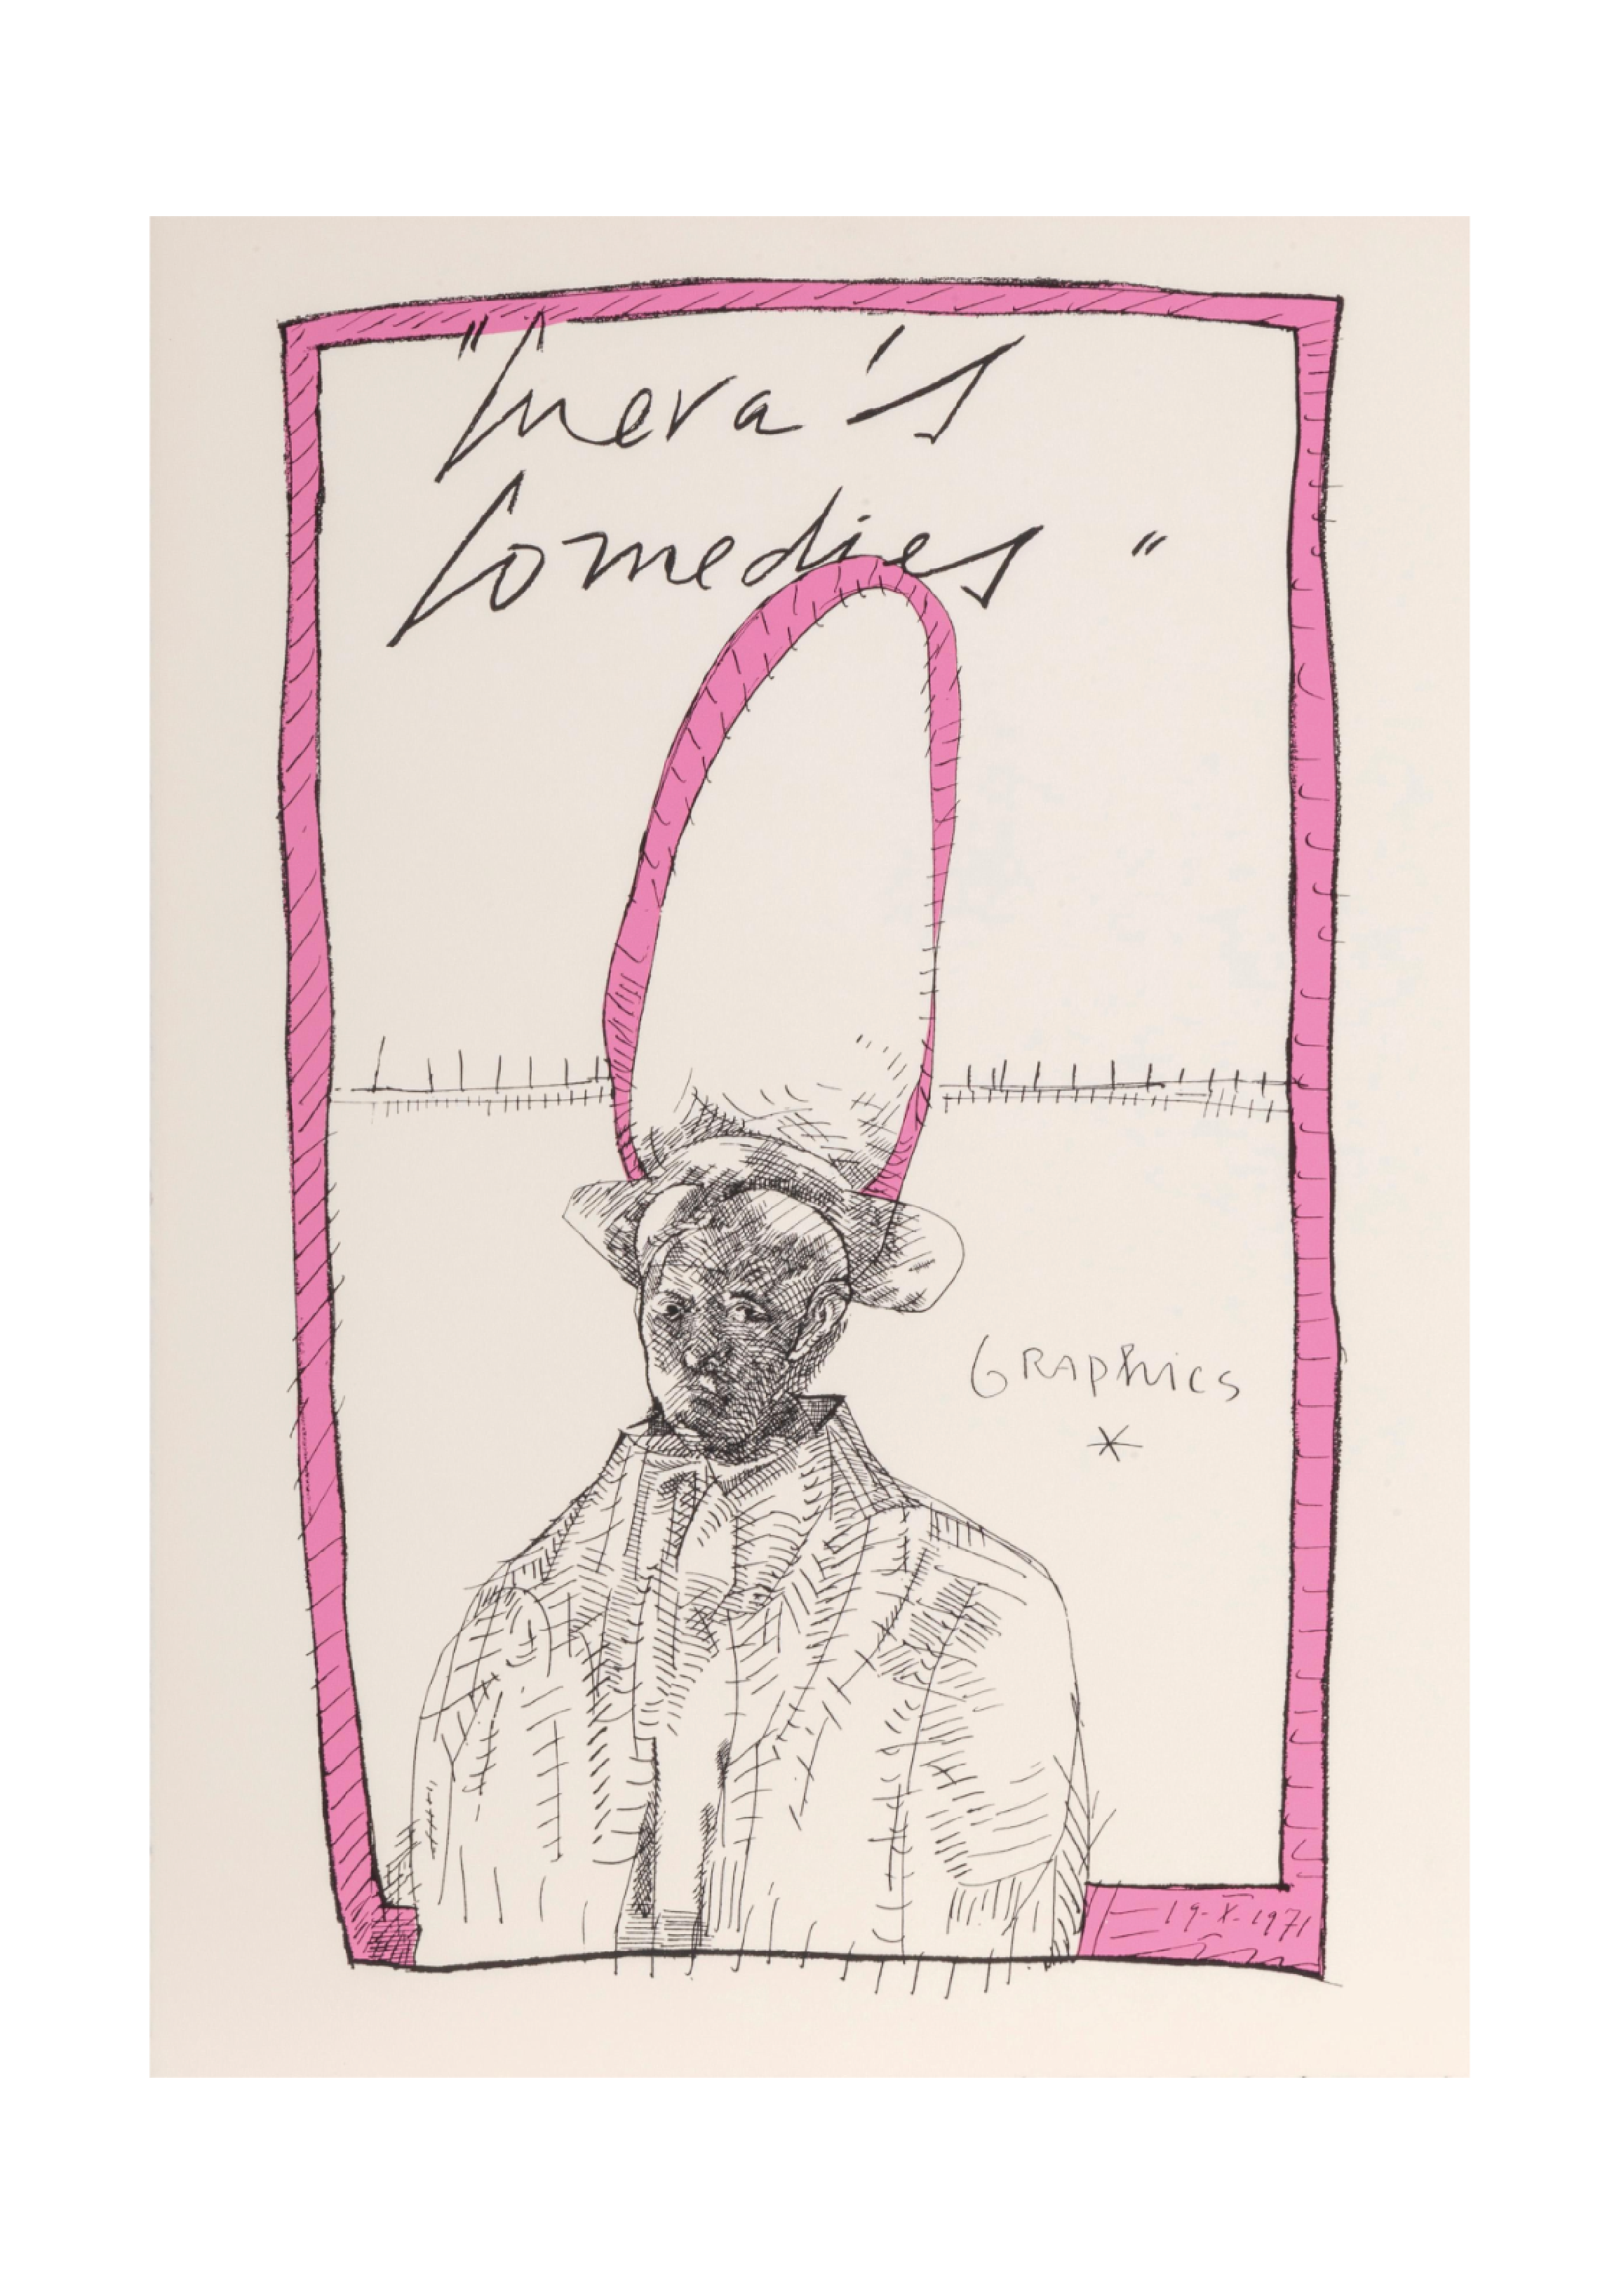 "Cueva's
Comedies"
GRAPhics
*
19-X-1971